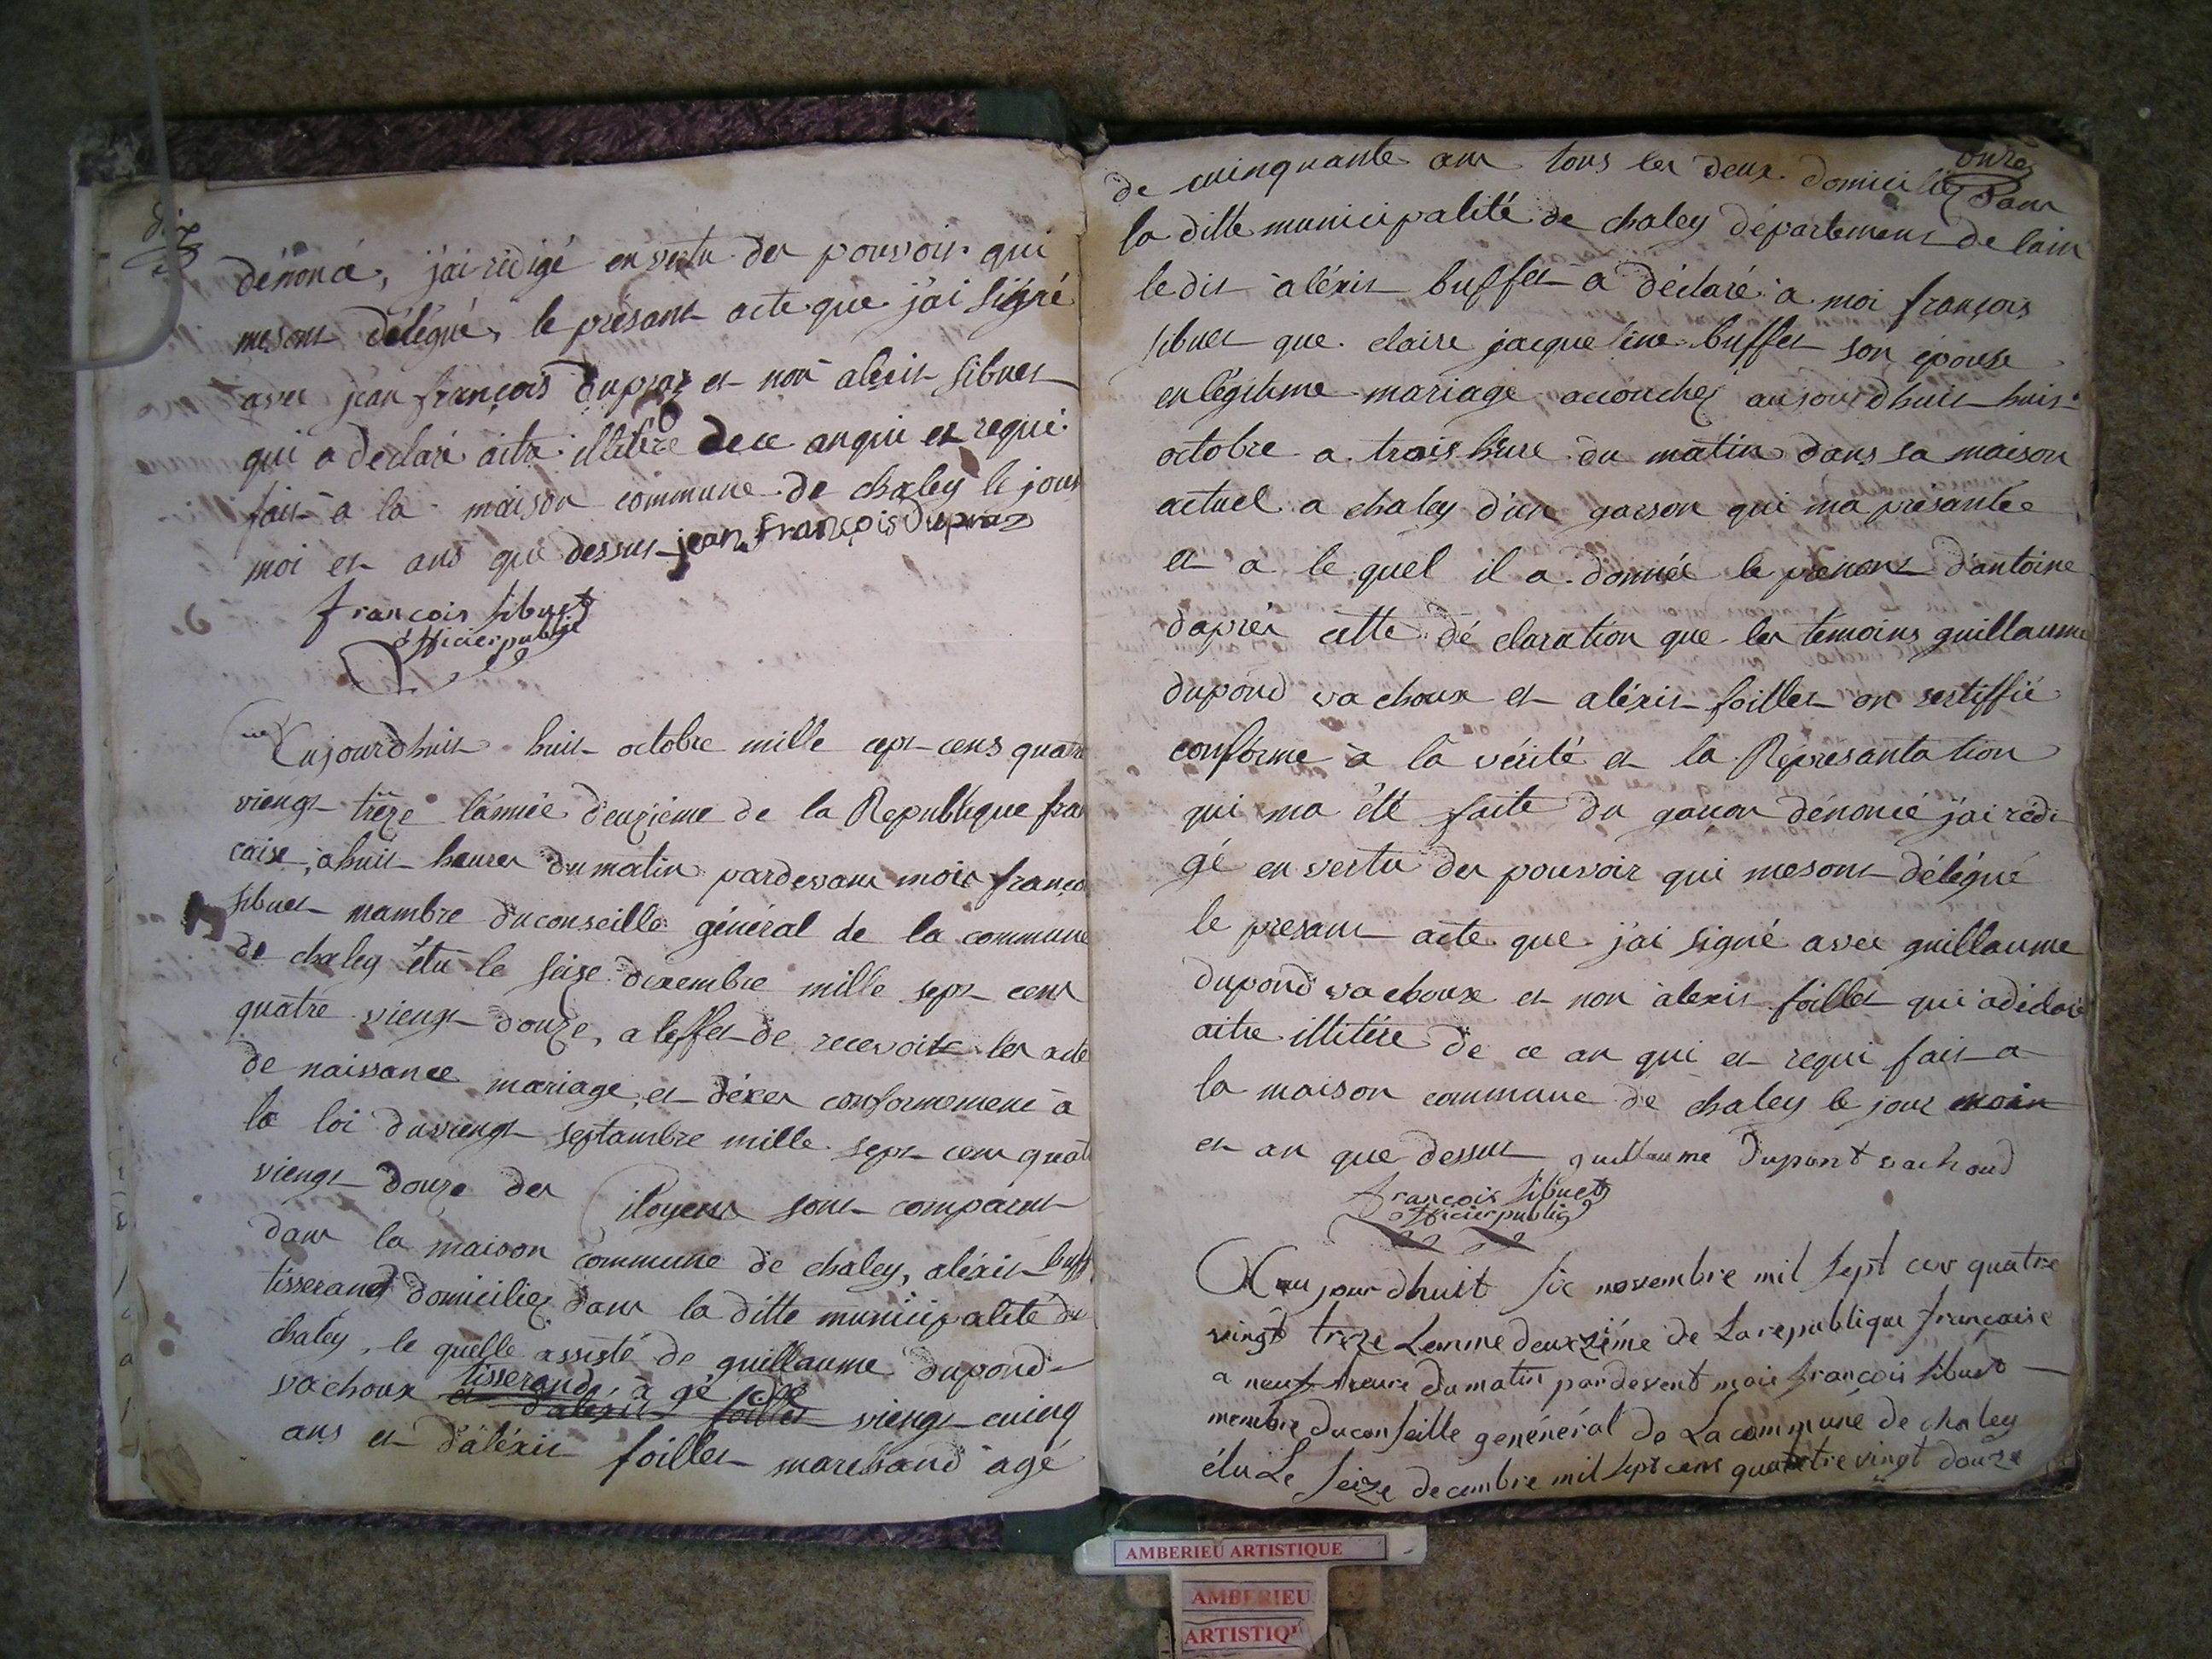 dix
dénoncé, j'ai rédigé en vertu des pouvoir qui
mesont délégué, le présant acte que j'ai signé
avec jean françois dupraz et non alexis sibuet
qui a déclaré aitre illitére de ce anqui et requi
fait a la maison commune de chaley le jour
moi et ans que dessus jean françois dupraz
françois sibuet
officier public
aujourdhuit huit octobre mille cept cens quatre
viengt trèze lannée deuzième de la Republique fran
caise, a huit heures du matin pardevant moi françois
sibuet mambre du conseille général de la commune
de chaley élû le seize dexembre mille sept cens
quatre viengt douze, a leffet de recevoir les acte
de naissance mariage et décer conformement à
la loi du viengt septambre mille sept cens quatre
viengt douze des Citoyens sont comparus
dans la maison commune de chaley, aléxis buff
tisserand domiciliez dans la ditte municipalité de
chaley, le quelle assisté de guillaume dupond
vachoux tisserand à gé de viengt cuinq
et d'aléxis foillet
ans et d'aléxis foillet marchand agé
onze
de cuinquante ans tous les deux domiciliez dans
la ditte municipalité de chaley département de lain
ledit aléxis buffet a déclaré a moi françois
sibuet que claire jacqueline buffet son épouse
en légitime mariage accouchez aujourdhuit huit
octobre a trois hure du matin dans sa maison
actuel a chaley d'un garson qui ma présantée
et a le quel il a donnée le prenont d'antoine
daprès cette dé claration que les témoins guillaume
dupond vachoux et aléxis foillet on sertiffié
conforme à la vérité et la Représantation
qui ma été faite du garçon dénoncé j'ai rédi
gé en vertu des pouvoir qui mesont délégué
le présant acte que j'ai signé avec guillaume
dupond vachoux et non alexis foillet qui a déclaré
aitre illitére de ce an qui et requi fait a
la maison commune de chaley le jour mois
et an que dessus guillaume dupont vachoud
françois sibuet
officier public
aujourdhuit six novembre mil sept cens quatre
vingt treze Lennne deuxzième de La republique française
a neuf heure du matin pardevent moi françois sibuet
membre du conseille genénéral de La commune de chaley
élu Le seize decembre mil sept cens quatretre vingt douze
AMBERIEU ARTISTIQUE
AMBERIEU
ARTISTIQ